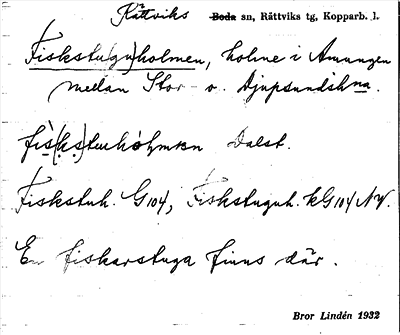 Rättviks Boda sn, Rättviks tg, Kopparb. l.
Fiskstu(gu)holmen, holme i Amungen
mellan Stor- o. Djupsundsh:na.
Dalst.
Fiskstuh. G104, Fiskstuguh. kG104 NV.
En fiskarstuga finns där.
Bror Lindén 1932